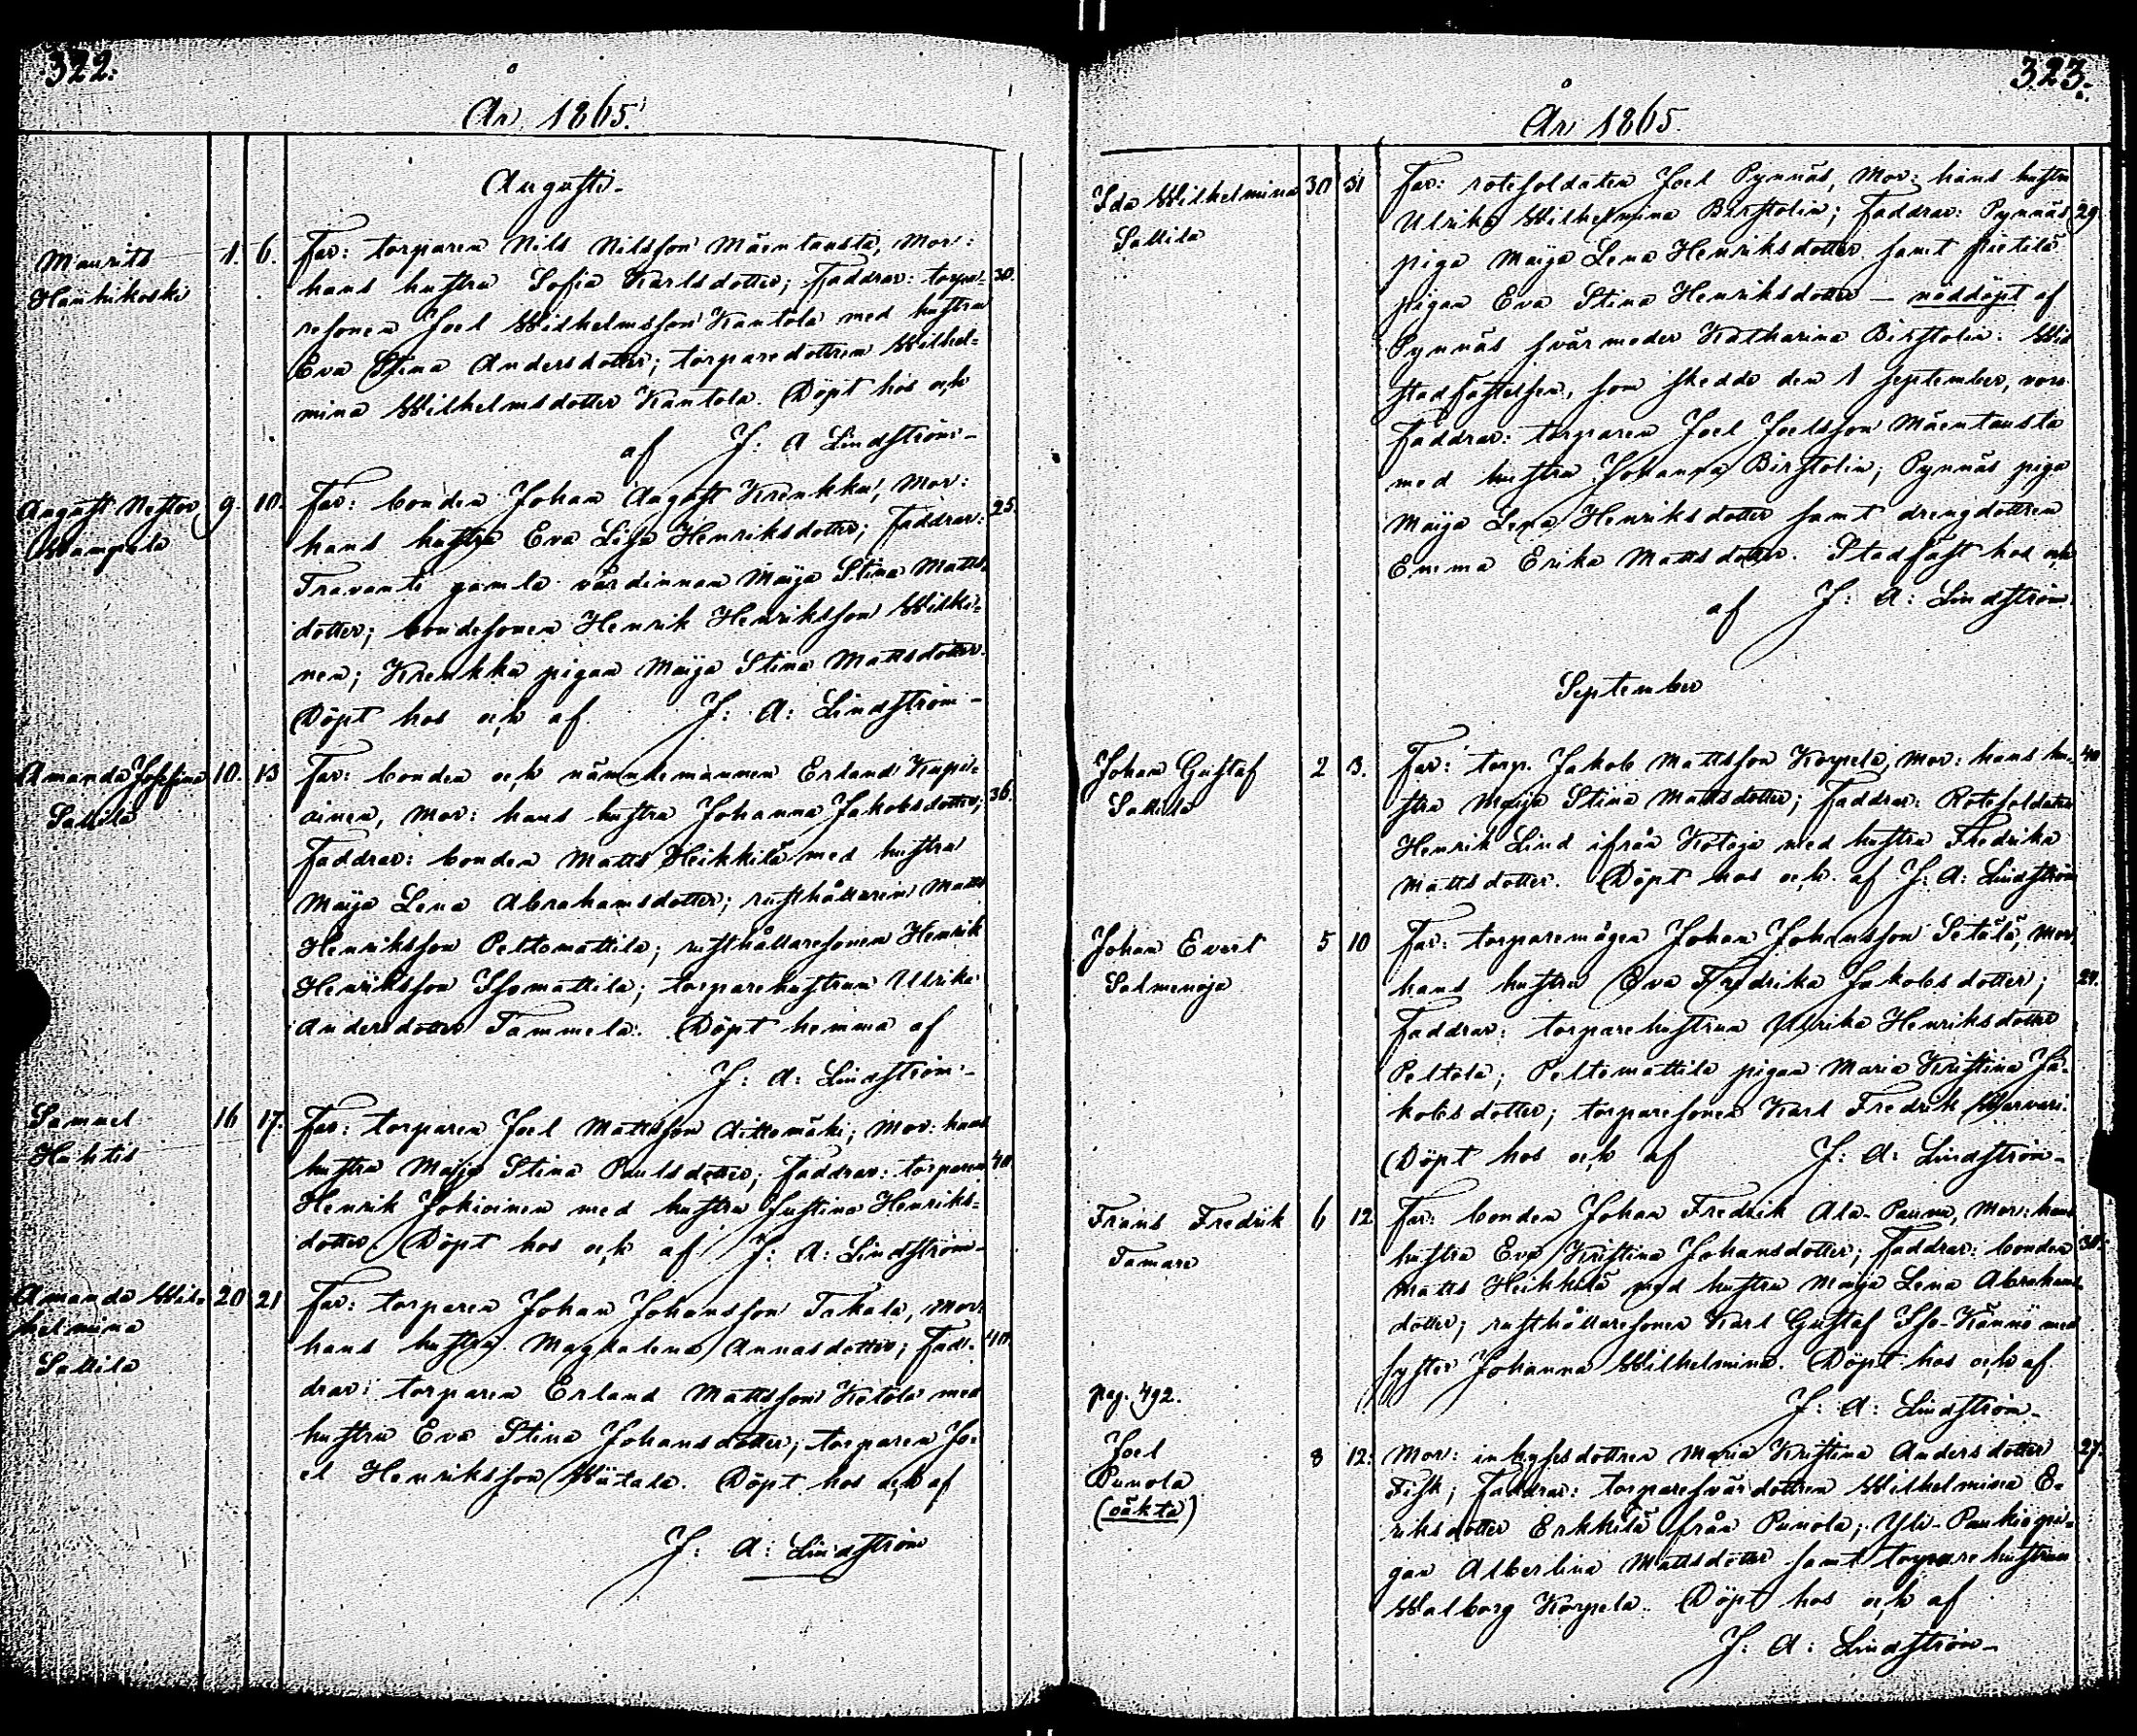 322.
År 1865.
Augusti
Maurits 1. 6. Far: torparen Nils Nilsson Mäentausta, Mor:
Hanhikoski hans hustru Sofia Karlsdotter; Faddrar: torpa- 30.
resonen Joel Wilhelmsson Kantola med hustru
Eva Stina Andersdotter; torparedottren Wilhel=
mina Wilhelmsdotter Kantola. Döpt hos och
af J: A Lindström
August Nestor 9. 10. Far: bonden Johan August Krenkku, Mor:
Wampula hans hustru Eva Lisa Henriksdotter; Faddrar: 25.
Travanti gamla värdinnan Maija Stina Matts-
dotter; bondesonen Henrik Henriksson Wilki=
nen; Krenkku pigan Maija Stina Mattsdotter.
Döpt hos och af J: A: Lindström
Amanda Josefina 10. 13 Far: bonden och nämndemannen Erland Kupi=
Sallila ainen, Mor: hans hustru Johanna Jakobsdotter; 36.
Faddrar: bonden Matts Heikkilä med hustru
Maija Lena Abrahamsdotter; rusthållaren Matts
Henriksson Peltomattila; rusthållaresonen Henrik
Henriksson Isomattila; torparehustrun Ulrika
Andersdotter Tammela. Döpt hemma af
J: A: Lindström
Samuel 16 17. Far: torparen Joel Mattsson Aittomäki; Mor: hans
Huhtis hustru Maija Stina Paulsdotter; Faddrar: torparen 40.
Henrik Jokioinen med hustru Justina Henriks=
dotter. Döpt hos och af J: A: Lindström
Amanda Wil- 20 21 Far: torparen Johan Johansson Takala, Mor:
helmina hans hustru Magdalena Annasdotter; Fad- 40.
Sallila drar: torparen Erland Mattsson Ketola med
hustru Eva Stina Johansdotter; torparen Jo-
el Henriksson Wiitala. Döpt hos och af
J: A: Lindström
323.
År 1865.
Ida Wilhelmina 30 31 Far: rotesoldaten Joel Pynnäs, Mor: hans hustru
Sallila Ulrika Wilhelmina Birstolin; Faddrar: Pynnäs 29
piga Maija Lena Henriksdotter samt Pietilä
pigan Eva Stina Henriksdotter — nöddöpt af
Pynnäs svärmoder Katharina Birstolin. Wid
stadfästelsen, som skedde den 1 september, voro
Faddrar: torparen Joel Joelsson Mäentausta
med hustru Johanna Birstolin; Pynnäs piga
Maija Lena Henriksdotter samt drengdottren
Emma Erika Mattsdotter. Stadfäst hos och
af J: A: Lindström
September
Johan Gustaf 2 3. Far: torp. Jakob Mattsson Korpela; Mor: hans hu- 40
Sallila stru Maija Stina Mattsdotter; Faddrar: Rotesoldaten
Henrik Lind ifrån Kötoja med hustru Fredrika
Mattsdotter. Döpt hos och af J: A: Lindström
Johan Evert 5 10 Far: torparemågen Johan Johansson Setälä, Mor:
Salmenoja hans hustru Eva Fredrika Jakobsdotter; 21.
Faddrar: torparehustrun Ulrika Henriksdotter
Peltola; Peltomattila pigan Maria Kristina Ja-
kobsdotter; torparesonen Karl Fredrik Warvari.
Döpt hos och af J: A: Lindström
Frans Fredrik 6 12 Far: bonden Johan Fredrik Ala-Paunu, Mor: hans
Tamare hustru Eva Kristina Johansdotter; Faddrar: bonden 30.
Matts Heikkilä med hustru Maija Lena Abrahams-
dotter; rusthållaresonen Karl Gustaf Iso-Kännö med
syster Johanna Wilhelmina. Döpt hos och af
pag. 492. J: A: Lindström
Joel 8 12. Mor: inhysesdottren Maria Kristina Andersdotter 27.
Punola Fisk; Faddrar: torparesvärdottren Wilhelmina E-
(oäkta) riksdotter Erkkilä från Punola; Yli-Panki pi=
gan Albertina Mattsdotter samt torparehustrun
Walborg Korpela. Döpt hos och af
J: A: Lindström